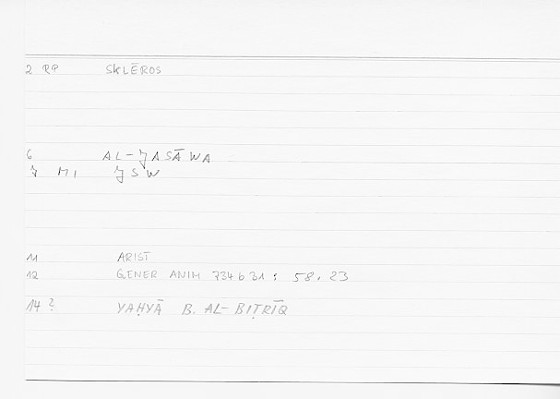 2 RP SKLĒROS
6 AL-JASĀWA
J MI JSW
11 ARIST
12 GENER ANIM 734b31: 58.23
14? YAḤYĀ B. AL-BIṬRĪQ